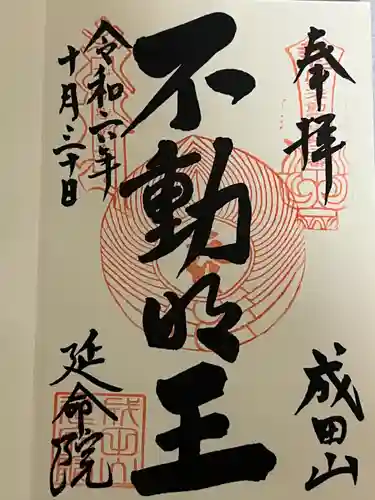 奉拝
成田山
不動明王
令和六年
十月三十日
延命院